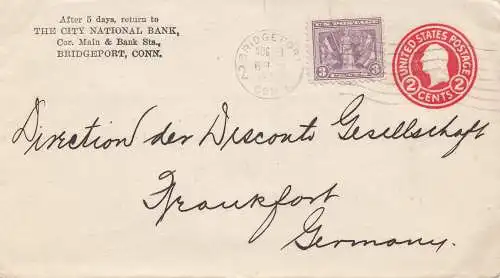 After 5 days, return to
THE CITY NATIONAL BANK,
Cor. Main & Bank Sts.,
BRIDGEPORT, CONN.
BRIDGEPORT
AUG
CONN
3 3
UNITED STATES POSTAGE
2 CENTS 2
Direction der Disconto Gesellschaft
Frankfort
Germany.